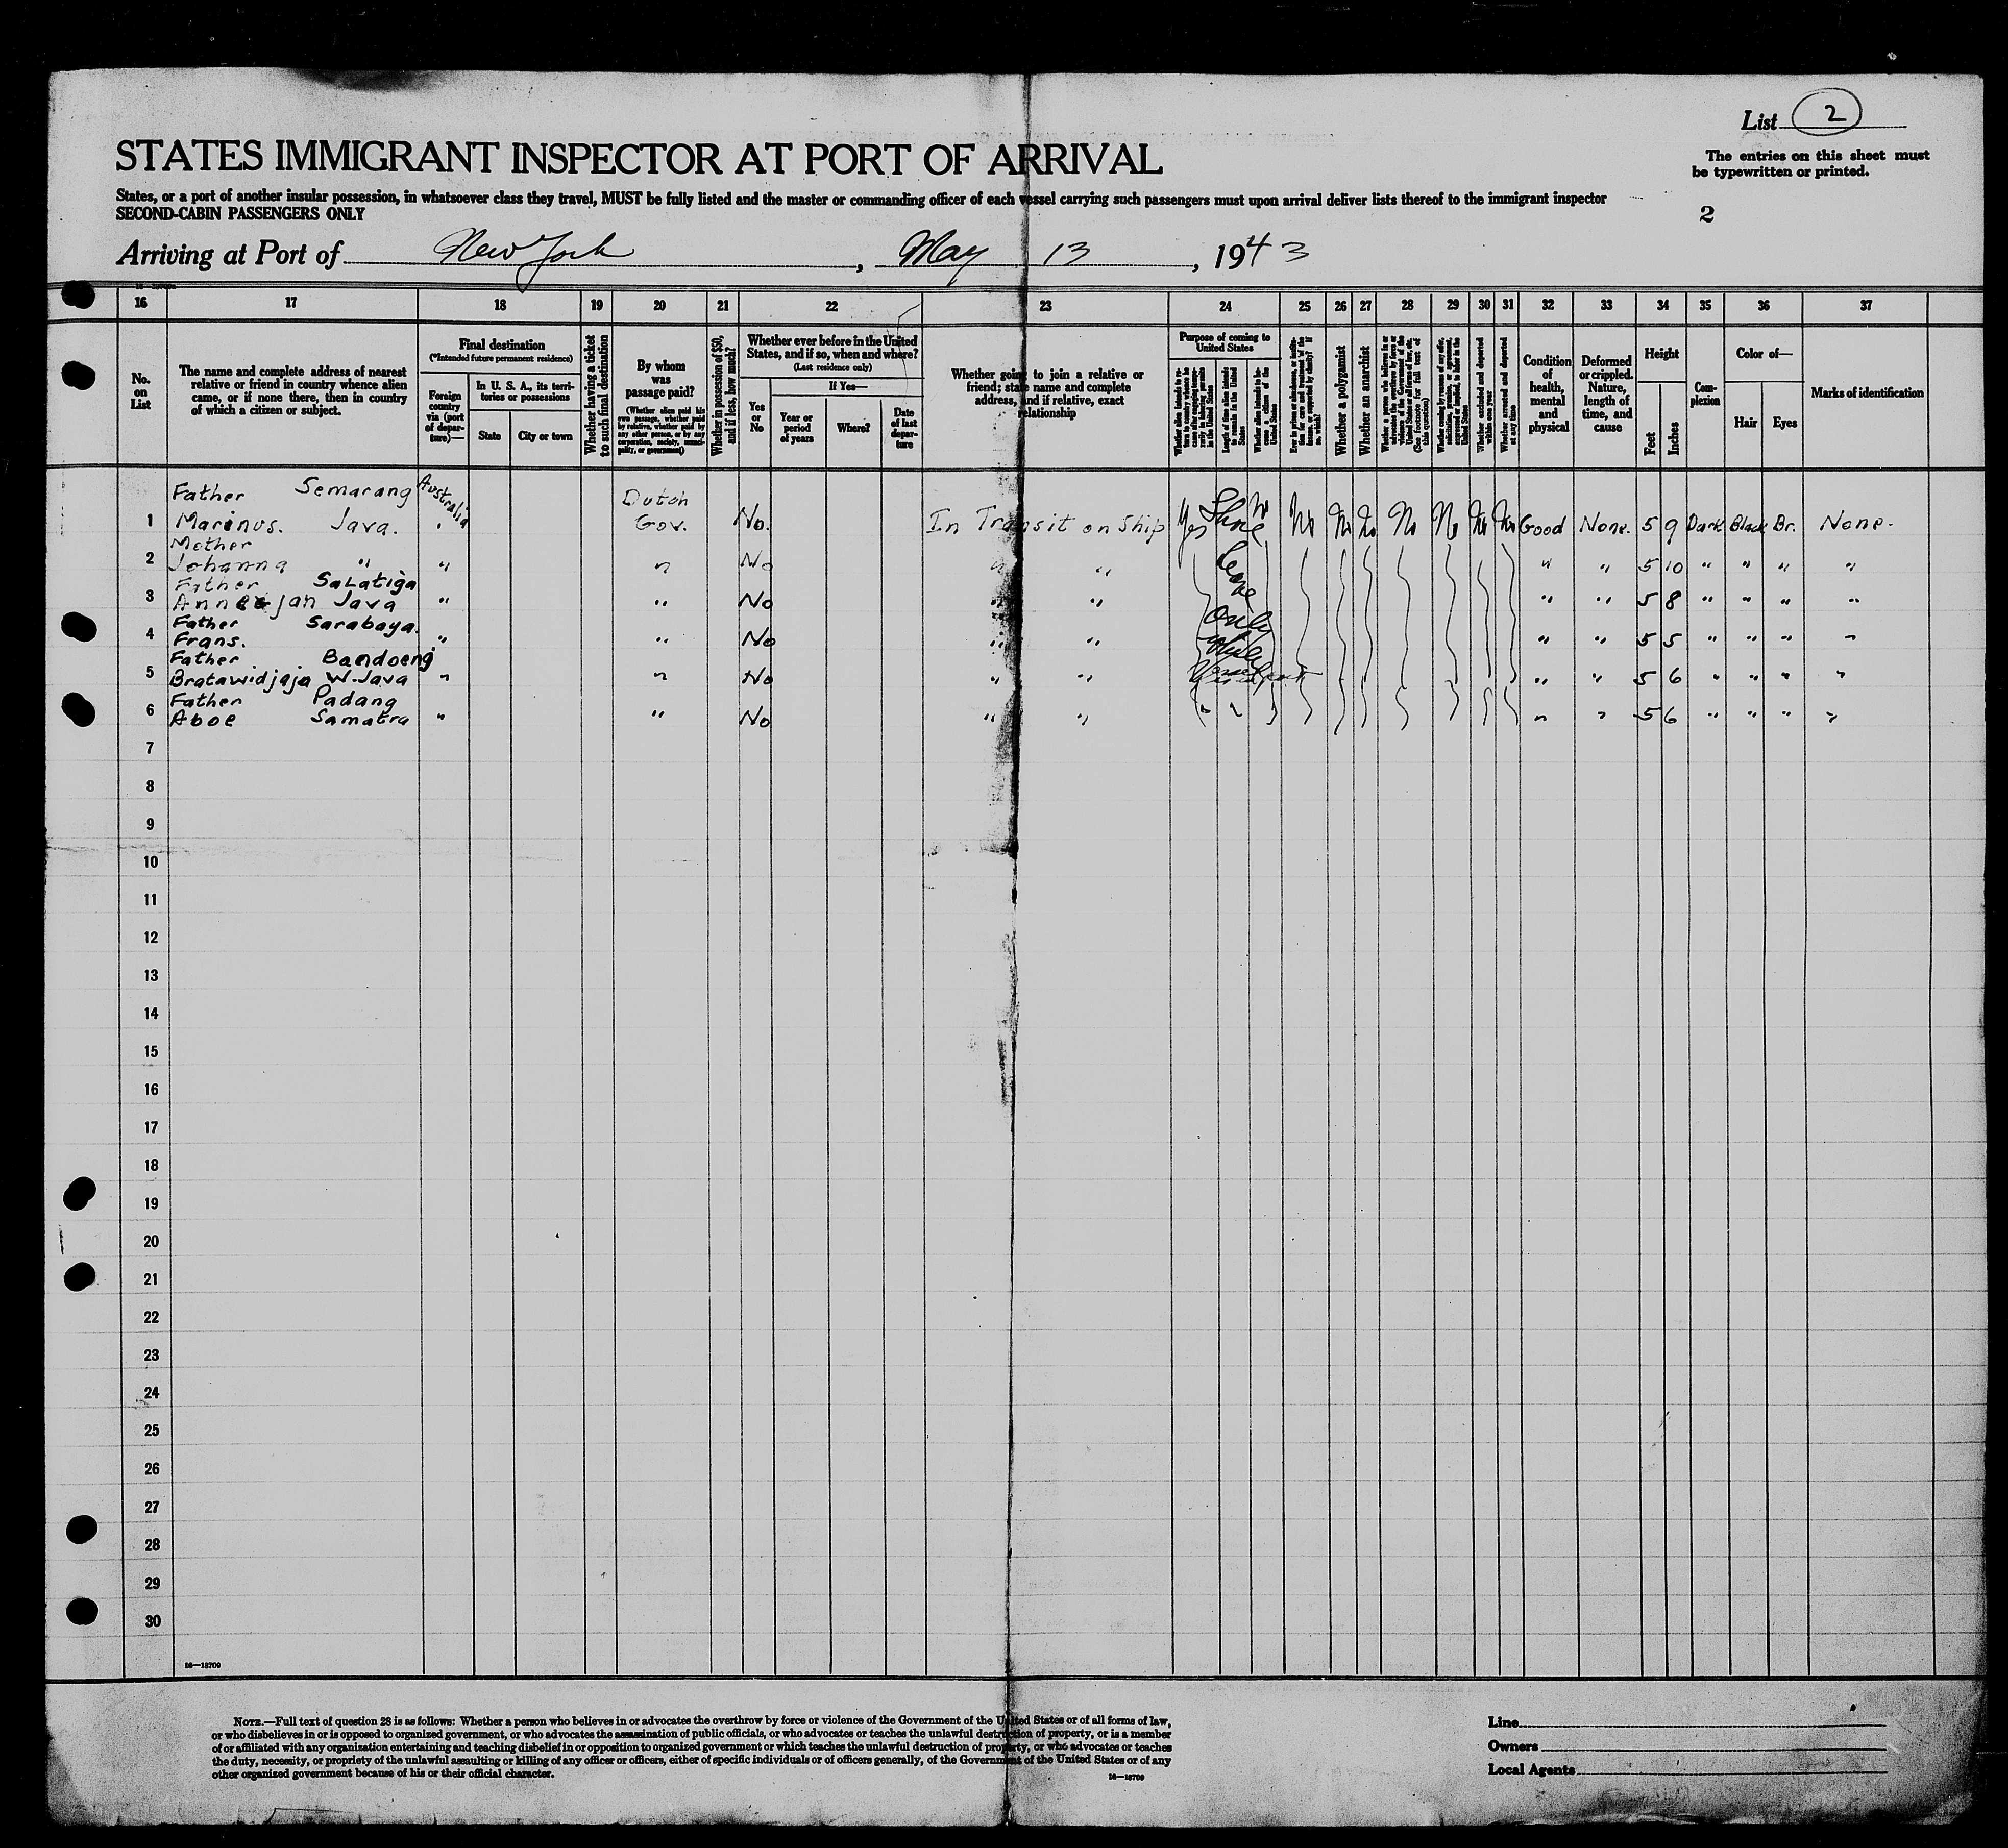 List 2
STATES IMMIGRANT INSPECTOR AT PORT OF ARRIVAL
The entries on this sheet must
be typewritten or printed.
States, or a port of another insular possession, in whatsoever class they travel, MUST be fully listed and the master or commanding officer of each vessel carrying such passengers must upon arrival deliver lists thereof to the immigrant inspector
SECOND-CABIN PASSENGERS ONLY
2
Arriving at Port of New York, May 13, 1943
16 17 18 19 20 21 22 23 24 25 26 27 28 29 30 31 32 33 34 35 36 37
No. on List
The name and complete address of nearest
relative or friend in country whence alien
came, or if none there, then in country
of which a citizen or subject.
Final destination
(*Intended future permanent residence)
Foreign country via (port of departure)—
In U. S. A., its territories or possessions
State
City or town
Whether having a ticket to such final destination
By whom was passage paid?
(Whether alien paid his own passage, whether paid by relative, whether paid by any other person, or by any corporation, society, municipality, or government)
Whether in possession of $50, and if less, how much?
Whether ever before in the United
States, and if so, when and where?
(Last residence only)
Yes or No
If Yes—
Year or period of years
Where?
Date of last departure
Whether going to join a relative or
friend; state name and complete
address, and if relative, exact
relationship
Purpose of coming to United States
Length of time alien intends to remain in the United States
Whether a polygamist
Whether an anarchist
(See footnote for full text of this question)
Whether excluded and deported within one year
Whether arrested and deported at any time
Condition of health, mental and physical
Deformed or crippled. Nature, length of time, and cause
Height
Feet
Inches
Complexion
Color of—
Hair
Eyes
Marks of identification
Father Semarang Australia Dutch
1 Marinus. Java. " Gov. No. In Transit on Ship Yes Shore No No No No No No No No Good None. 5 9 Dark Black Br. None.
Mother
2 Johanna " " " No " " leave " " 5 10 " " " "
Father Salatiga
3 Java " " No " " " " 5 8 " " " "
Father Sarabaya.
4 Frans. " " No " " only " " 5 5 " " " "
Father Bandoeng
5 Bratawidjaja W. Java " " No " " " " 5 6 " " " "
Father Padang
6 Aboe Samatra " " No " " " " " 5 6 " " " "
7
8
9
10
11
12
13
14
15
16
17
18
19
20
21
22
23
24
25
26
27
28
29
30
16—18709
NOTE.—Full text of question 28 is as follows: Whether a person who believes in or advocates the overthrow by force or violence of the Government of the United States or of all forms of law,
or who disbelieves in or is opposed to organized government, or who advocates the assassination of public officials, or who advocates or teaches the unlawful destruction of property, or is a member
of or affiliated with any organization entertaining and teaching disbelief in or opposition to organized government or which teaches the unlawful destruction of property, or who advocates or teaches
the duty, necessity, or propriety of the unlawful assaulting or killing of any officer or officers, either of specific individuals or of officers generally, of the Government of the United States or of any
other organized government because of his or their official character.
16—18709
Line
Owners
Local Agents